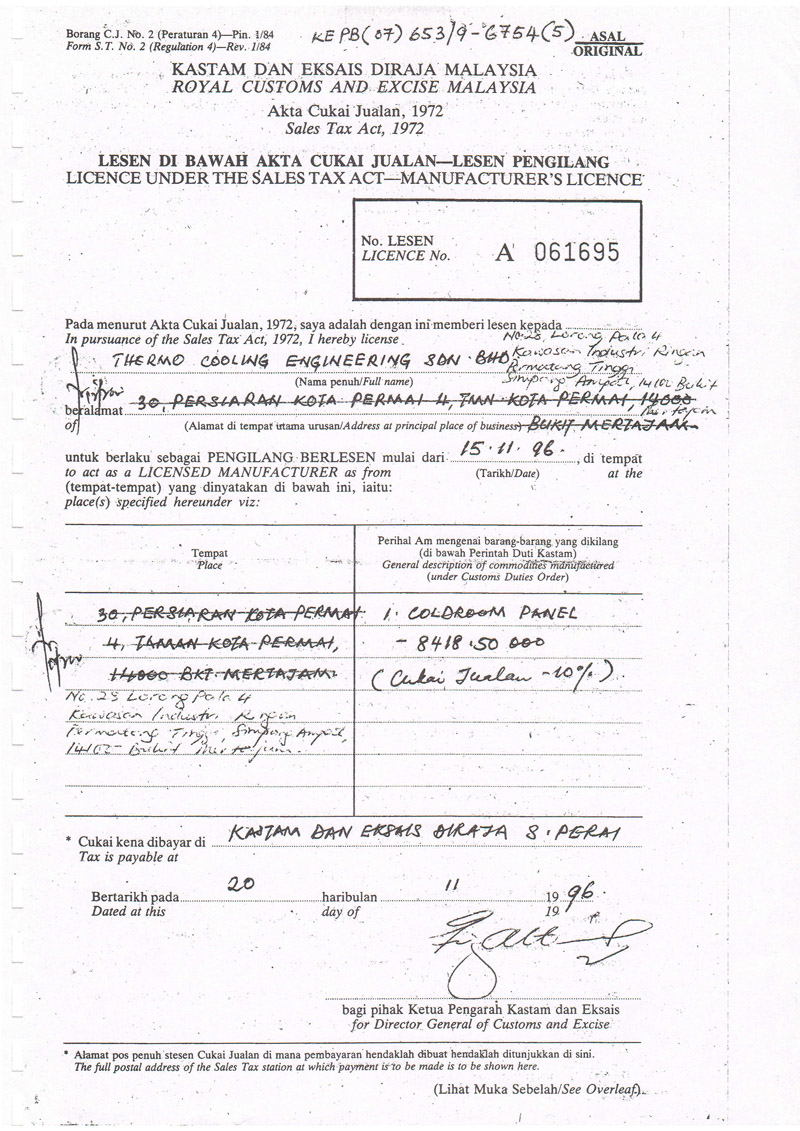 Borang C.J. No. 2 (Peraturan 4)—Pin. 1/84
Form S.T. No. 2 (Regulation 4)—Rev. 1/84
KE PB(07) 653/9-6754(5)
ASAL
ORIGINAL
KASTAM DAN EKSAIS DIRAJA MALAYSIA
ROYAL CUSTOMS AND EXCISE MALAYSIA
Akta Cukai Jualan, 1972
Sales Tax Act, 1972
LESEN DI BAWAH AKTA CUKAI JUALAN—LESEN PENGILANG
LICENCE UNDER THE SALES TAX ACT—MANUFACTURER'S LICENCE
No. LESEN
LICENCE No.
A 061695
Pada menurut Akta Cukai Jualan, 1972, saya adalah dengan ini memberi lesen kepada
In pursuance of the Sales Tax Act, 1972, I hereby license
THERMO COOLING ENGINEERING SDN. BHD
No. 28 Lorong Pala 4
Kawasan Industri Ringan
Permatang Tinggi
Simpang Ampat, 14102 Bukit
Mertajam
(Nama penuh/Full name)
beralamat 30, PERSIARAN KOTA PERMAI 4, TMN KOTA PERMAI, 14000
of (Alamat di tempat urtama urusan/Address at principal place of business) BUKIT MERTAJAM
untuk berlaku sebagai PENGILANG BERLESEN mulai dari 15.11.96. , di tempat
to act as a LICENSED MANUFACTURER as from (Tarikh/Date) at the
(tempat-tempat) yang dinyatakan di bawah ini, iaitu:
place(s) specified hereunder viz:
Tempat
Place
Perihal Am mengenai barang-barang yang dikilang
(di bawah Perintah Duti Kastam)
General description of commodities manufactured
(under Customs Duties Order)
30, PERSIARAN KOTA PERMAI
4, TAMAN KOTA PERMAI,
14000 BKT. MERTAJAM
No. 28 Lorong Pala 4
Kawasan Industri Ringan
Permatang Tinggi, Simpang Ampat,
14102 Bukit Mertajam.
1. COLDROOM PANEL
- 8418.50 000
(Cukai Jualan -10%)
* Cukai kena dibayar di KASTAM DAN EKSAIS DIRAJA S. PERAI
Tax is payable at
Bertarikh pada 20 haribulan 11 19 96.
Dated at this day of 19
bagi pihak Ketua Pengarah Kastam dan Eksais
for Director General of Customs and Excise
* Alamat pos penuh stesen Cukai Jualan di mana pembayaran hendaklah dibuat hendaklah ditunjukkan di sini.
The full postal address of the Sales Tax station at which payment is to be made is to be shown here.
(Lihat Muka Sebelah/See Overleaf)